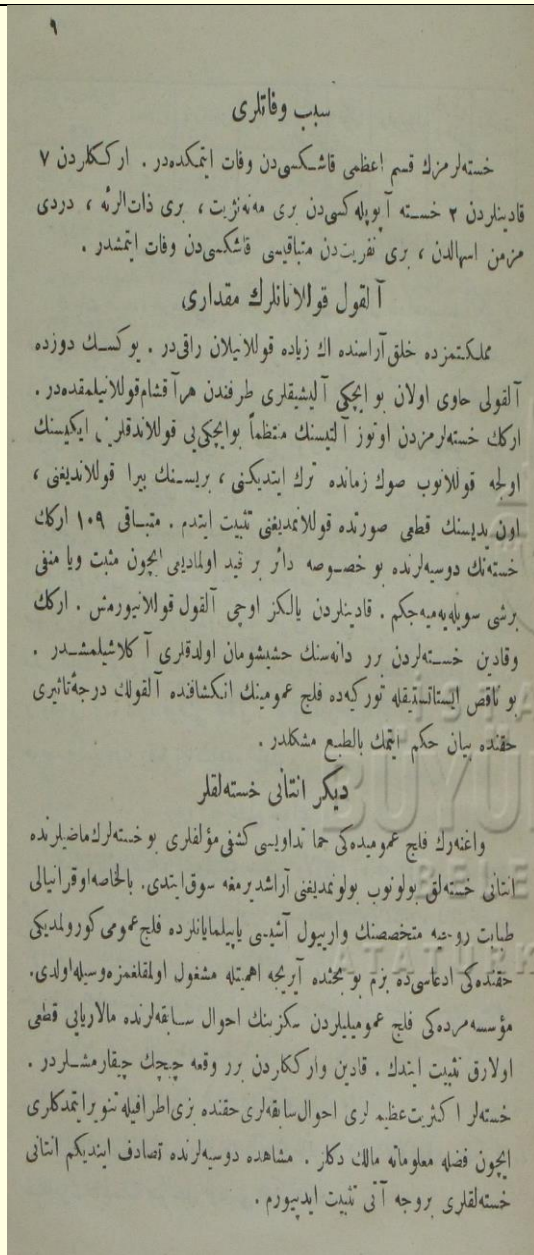 ٩
سبب وفاتلری
خسته‌لرمزك قسم اعظمی قاشكسی‌دن وفات ایتمكده‌در . ارككلردن ٧
قادینلردن ٢ خسته آپوپله‌كسی‌دن بری مه‌نه‌نژیت ، بری ذات‌الرئه ، دردی
مزمن اسهالدن ، بری نفریت‌دن متباقیسی قاشكسی‌دن وفات ایتمشدر .
آلقول قوللانانلرك مقداری
مملكتمزده خلق آراسنده اك زیاده قوللانیلان راقی‌در . یوكسك دوزده
آلقولی حاوی اولان بو ایچكی آلیشیقلری طرفندن هر آقشام قوللانیلمقده‌در .
اركك خسته‌لرمزدن اوتوز آلتیسنك منتظماً بو ایچكی‌یی قوللاندقلرینی ایكیسنك
اولجه قوللانوب صوك زمانده ترك ایتدیكنی ، بریسنك بیرا قوللاندیغنی ،
اون یدیسنك قطعی صورتده قوللانمدیغنی تثبیت ایتدم . متباقی ١٠٩ اركك
خسته‌نك دوسیه‌لرنده بو خصوصه دائر بر قید اولمادیغی ایچون مثبت ویا منفی
برشی سویله‌یه‌میه‌جكم . قادینلردن یالكز اوچی آلقول قوللانیورمش . اركك
وقادین خسته‌لردن برر دانه‌سنك حشیشومان اولدقلری آكلاشیلمشدر .
بو ناقص ایستاتستیقله توركیه‌ده فلج عمومینك انكشافنده آلقولك درجۀ تأثیری
حقنده بیان حكم ایتمك بالطبع مشكلدر .
دیكر انتانی خسته‌لقلر
واغنه‌رك فلج عمومیده‌كی حما تداویسی كشفی مؤلفلری بو خسته‌لرك ماضیلرنده
انتانی خسته‌لق بولونوب بولونمدیغنی آراشدیرمغه سوق ایتدی. بالخاصه اوقرانیالی
طبابت روحیه متخصصنك واریبول آشیسی یاپیلمایانلرده فلج عمومی كورولمدیكی
حقنده‌كی ادعاسی‌ده بزم بو بحثده آیریجه اهمیتله مشغول اولمقلغمزه وسیله اولدی.
مؤسسه‌مزده‌كی فلج عمومیلیلردن سكزینك احوال سابقه‌لرنده مالاریایی قطعی
اولارق تثبیت ایتدك . قادین واركككلردن برر وقعه چیچك چیقارمشلردر .
خسته‌لر اكثریت عظیمه‌لری احوال سابقه‌لری حقنده بزی اطرافیله تنویر ایتمدكلری
ایچون فضله معلوماته مالك دكلز . مشاهده دوسیه‌لرنده تصادف ایتدیكم انتانی
خسته‌لقلری بروجه آتی تثبیت ایدییورم .